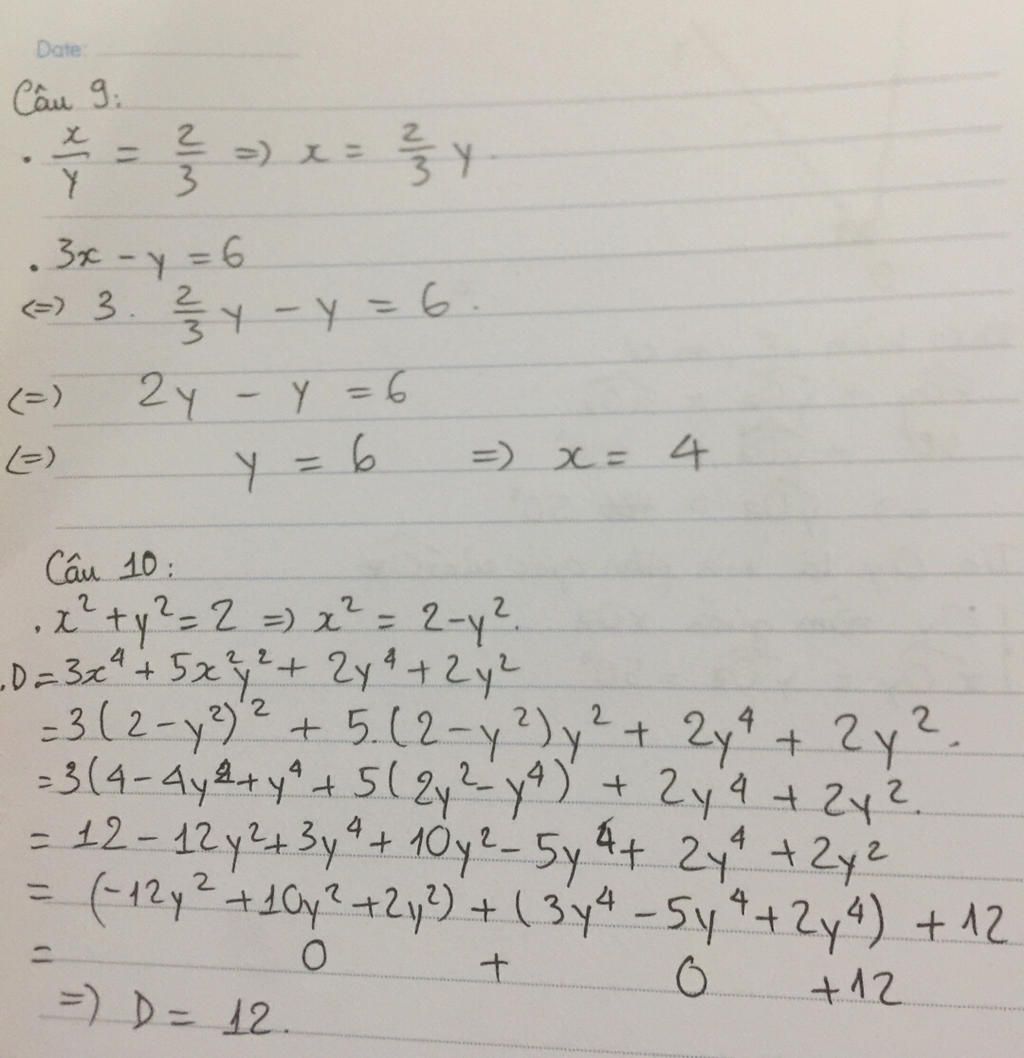 Date:
Câu 9:
. x/y = 2/3 => x = 2/3 y.
. 3x - y = 6
<=> 3. 2/3 y - y = 6.
<=> 2y - y = 6
<=> y = 6 => x = 4
Câu 10:
. x² + y² = 2 => x² = 2 - y².
. D = 3x⁴ + 5x²y² + 2y⁴ + 2y²
= 3(2 - y²)² + 5.(2 - y²)y² + 2y⁴ + 2y².
= 3(4 - 4y² + y⁴ + 5(2y² - y⁴) + 2y⁴ + 2y².
= 12 - 12y² + 3y⁴ + 10y² - 5y⁴ + 2y⁴ + 2y²
= (-12y² + 10y² + 2y²) + (3y⁴ - 5y⁴ + 2y⁴) + 12
= 0 + 0 + 12
=> D = 12.